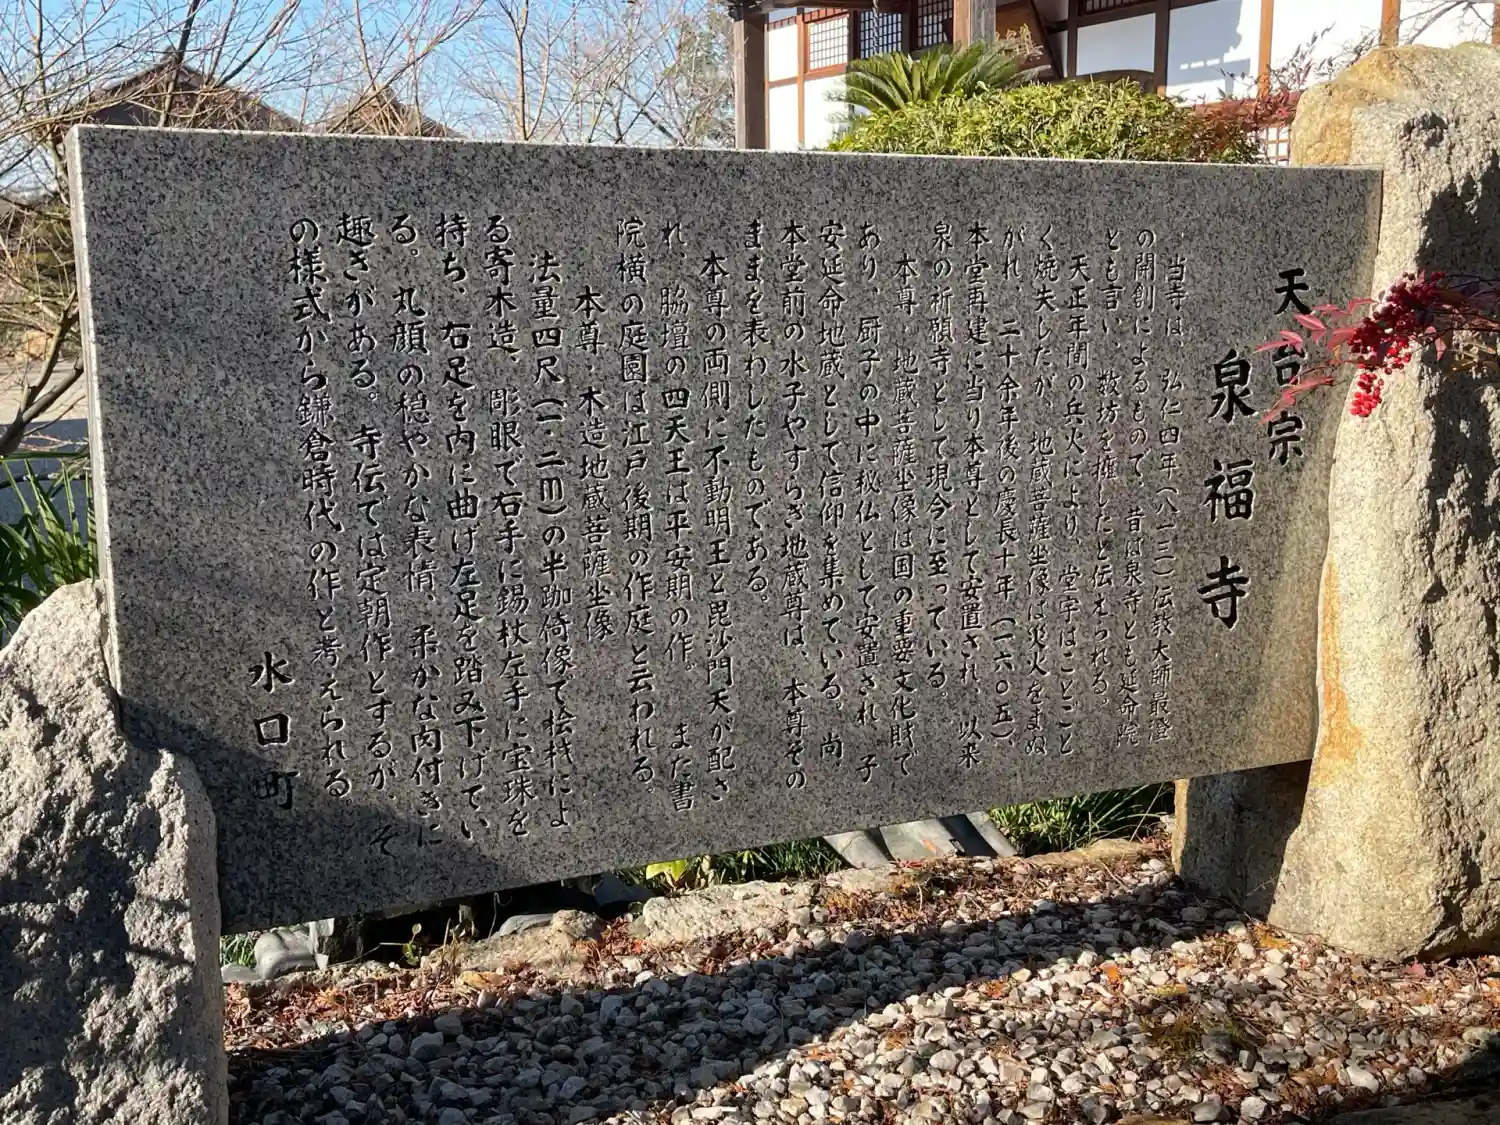 天台宗
泉福寺
当寺は、弘仁四年(八一三)伝教大師最澄
の開創によるもので、昔は泉寺とも延命院
とも言い、数坊を擁したと伝えられる。
天正年間の兵火により、堂宇はことごと
く焼失したが、地蔵菩薩坐像は災火をまぬ
がれ、二十余年後の慶長十年(一六〇五)、
本堂再建に当り本尊として安置され、以来
泉の祈願寺として現今に至っている。
本尊・地蔵菩薩坐像は国の重要文化財で
あり、厨子の中に秘仏として安置され、子
安延命地蔵として信仰を集めている。尚、
本堂前の水子やすらぎ地蔵尊は、本尊その
ままを表わしたものである。
本尊の両側に不動明王と毘沙門天が配さ
れ、脇壇の四天王は平安期の作。また書
院横の庭園は江戸後期の作庭と云われる。
本尊・木造地蔵菩薩坐像
法量四尺(一・二m)の半跏倚像で桧材によ
る寄木造、彫眼で右手に錫杖左手に宝珠を
持ち、右足を内に曲げ左足を踏み下げてい
る。丸顔の穏やかな表情、柔かな肉付きに
趣きがある。寺伝では定朝作とするが、そ
の様式から鎌倉時代の作と考えられる
水口町